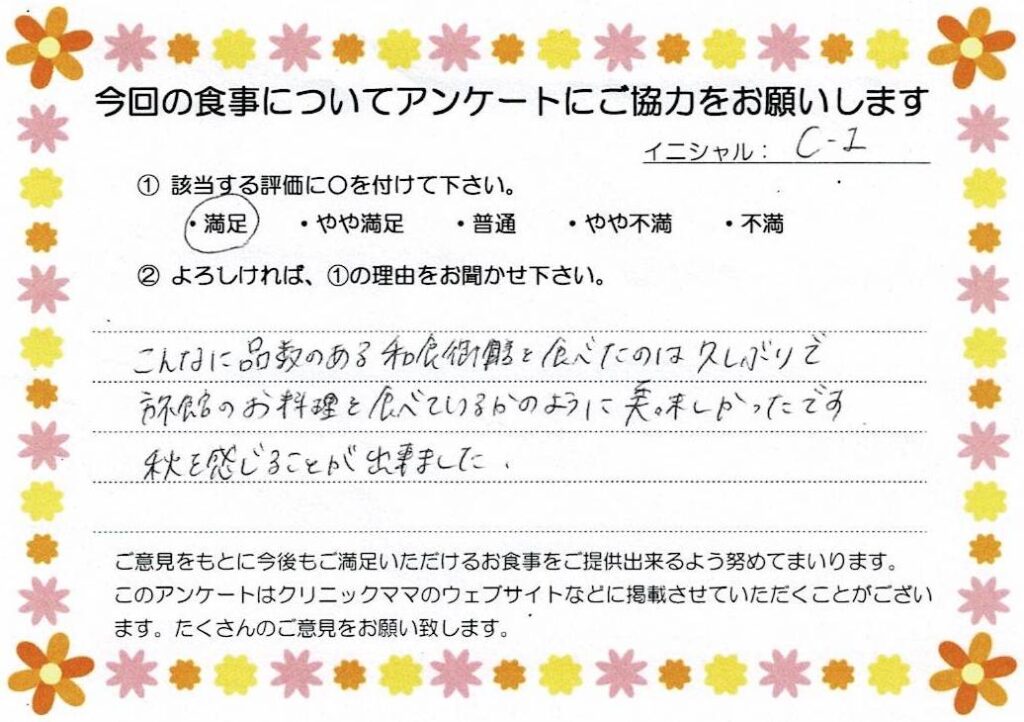 今回の食事についてアンケートにご協力をお願いします
イニシャル： C-I
① 該当する評価に〇を付けて下さい。
・満足 ・やや満足 ・普通 ・やや不満 ・不満
② よろしければ、①の理由をお聞かせ下さい。
こんなに品数のある和食御膳を食べたのは久しぶりで
旅館のお料理を食べているかのように美味しかったです
秋を感じることが出来ました.
ご意見をもとに今後もご満足いただけるお食事をご提供出来るよう努めてまいります。
このアンケートはクリニックママのウェブサイトなどに掲載させていただくことがござい
ます。たくさんのご意見をお願い致します。